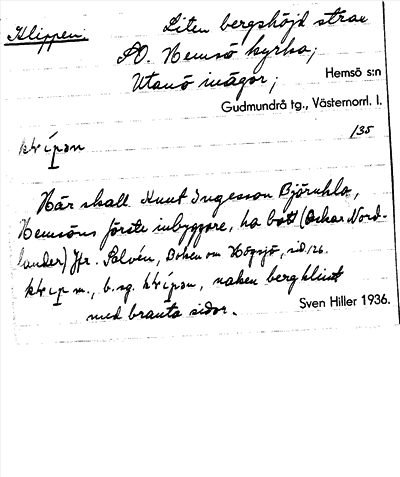 Klippen.
Liten bergshöjd strax
SO. Hemsö kyrka;
Utanö inägor;
Hemsö s:n
Gudmundrå tg., Västernorrl. l.
135
Här skall Knut Ingesson Björnhla,
Hemsöns förste inbyggare, ha bott (Oskar Nord-
lander) Jfr. Salvén, Boken om Högsjö, sid. 126.
m., b.sg. naken bergklint
med branta sidor.
Sven Hiller 1936.